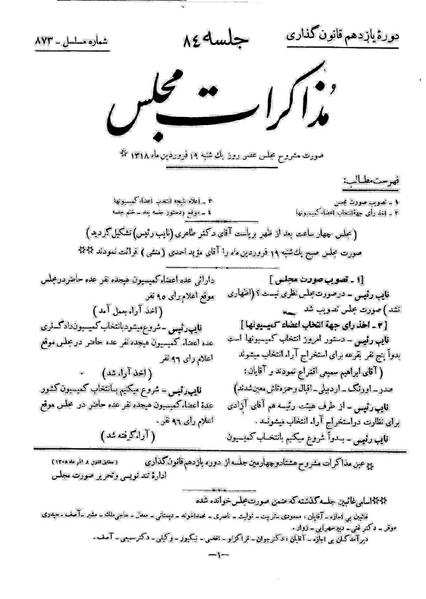 دورهٔ یازدهم قانون گذاری
جلسه ۸٤
شماره مسلسل - ۸۷۳
مذاکرات مجلس
صورت مشروح مجلس عصر روز یك شنبه ۱۹ فروردین ماه ۱۳۱۸ ※
فهرست مطالب:
۱ - تصویب صورت مجلس
۲ - اخذ رأی جهة انتخاب اعضاء کمیسیونها
۳ - اعلام نتیجه انتخاب اعضاء کمیسیونها
٤ - موقع و دستور جلسه بعد - ختم جلسه
(مجلس چهار ساعت بعد از ظهر بریاست آقای دکتر طاهری (نایب رئیس) تشکیل گردید)
صورت مجلس صبح یك شنبه ۱۹ فروردین ماه را آقای مؤید احمدی (منشی) قرائت نمودند ※※
[۱ - تصویب صورت مجلس]
نایب رئیس - در صورت مجلس نظری نیست؟ (اظهاری
نشد) صورت مجلس تصویب شد
[۲ - اخذ رأی جهة انتخاب اعضاء کمیسیونها]
نایب رئیس - دستور امروز انتخاب کمیسیونها است
بدواً پنج نفر بقرعه برای استخراج آراء انتخاب میشوند
(آقای ابراهیم سمیعی اقتراع نمودند و آقایان:
صدر - اورنگ - اردبیلی - اقبال و حمزه تاش معین شدند)
نایب رئیس - از طرف هیئت رئیسه هم آقای آزادی
برای نظارت در استخراج آراء انتخاب میشوند.
نایب رئیس - بدواً شروع میکنیم بانتخاب کمیسیون
دارائی عده اعضاء کمیسیون هیجده نفر عده حاضر در مجلس
موقع اعلام رأی ۹۵ نفر
(اخذ آراء بعمل آمد)
نایب رئیس - شروع میشود بانتخاب کمیسیون دادگستری
اعضاء کمیسیون هیجده نفر عده حاضر در مجلس موقع
اعلام رأی ۹٦ نفر
(اخذ آراء شد)
نایب رئیس - شروع میکنیم بانتخاب کمیسیون کشور
عدهٔ اعضاء کمیسیون هیجده نفر عده حاضر در مجلس موقع
اعلام رأی ۹٦ نفر
(آراء گرفته شد)
※ عین مذاکرات مشروح هشتاد و چهارمین جلسه از دوره یازدهم قانون گذاری
(مطابق قانون ۸ آذر ماه ۱۳۰۵)
اداره تند نویسی و تحریر صورت مجلس
※※ اسامی غائبین جلسه گذشته که ضمن صورت مجلس خوانده شده
غائبین بی اجازه - آقایان:
دیر آمدگان بی اجازه - آقایان: دکتر جوان -
-۱-